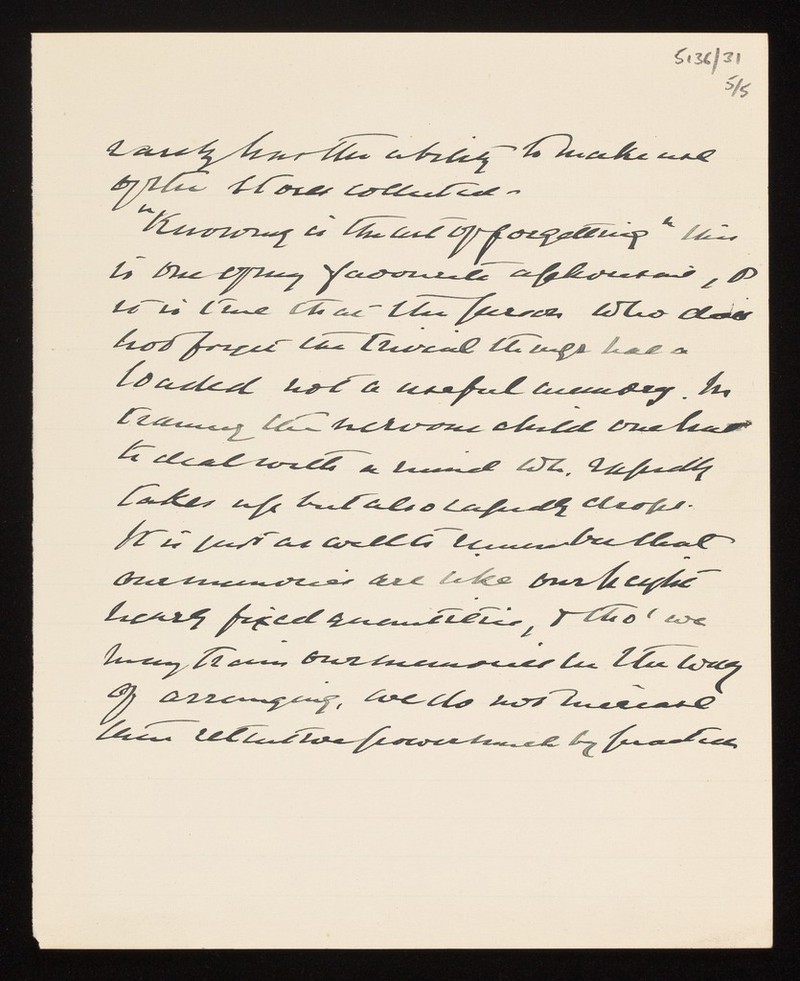 5136/31
5/5
rarely has the ability to make use
of the stores collected -
"Knowing is the art of forgetting" this
is one of my favourite aphorisms, &
it is true that the person who does
not forget the trivial things has a
loaded not a useful memory. In
training the nervous child one has
to deal with a mind wh. rapidly
takes up but also rapidly drops.
It is just as well to remember that
our memories are like our height
nearly fixed quantities, & tho' we
may train our memories in the way
of arranging, we do not increase
their retentive power much by practice